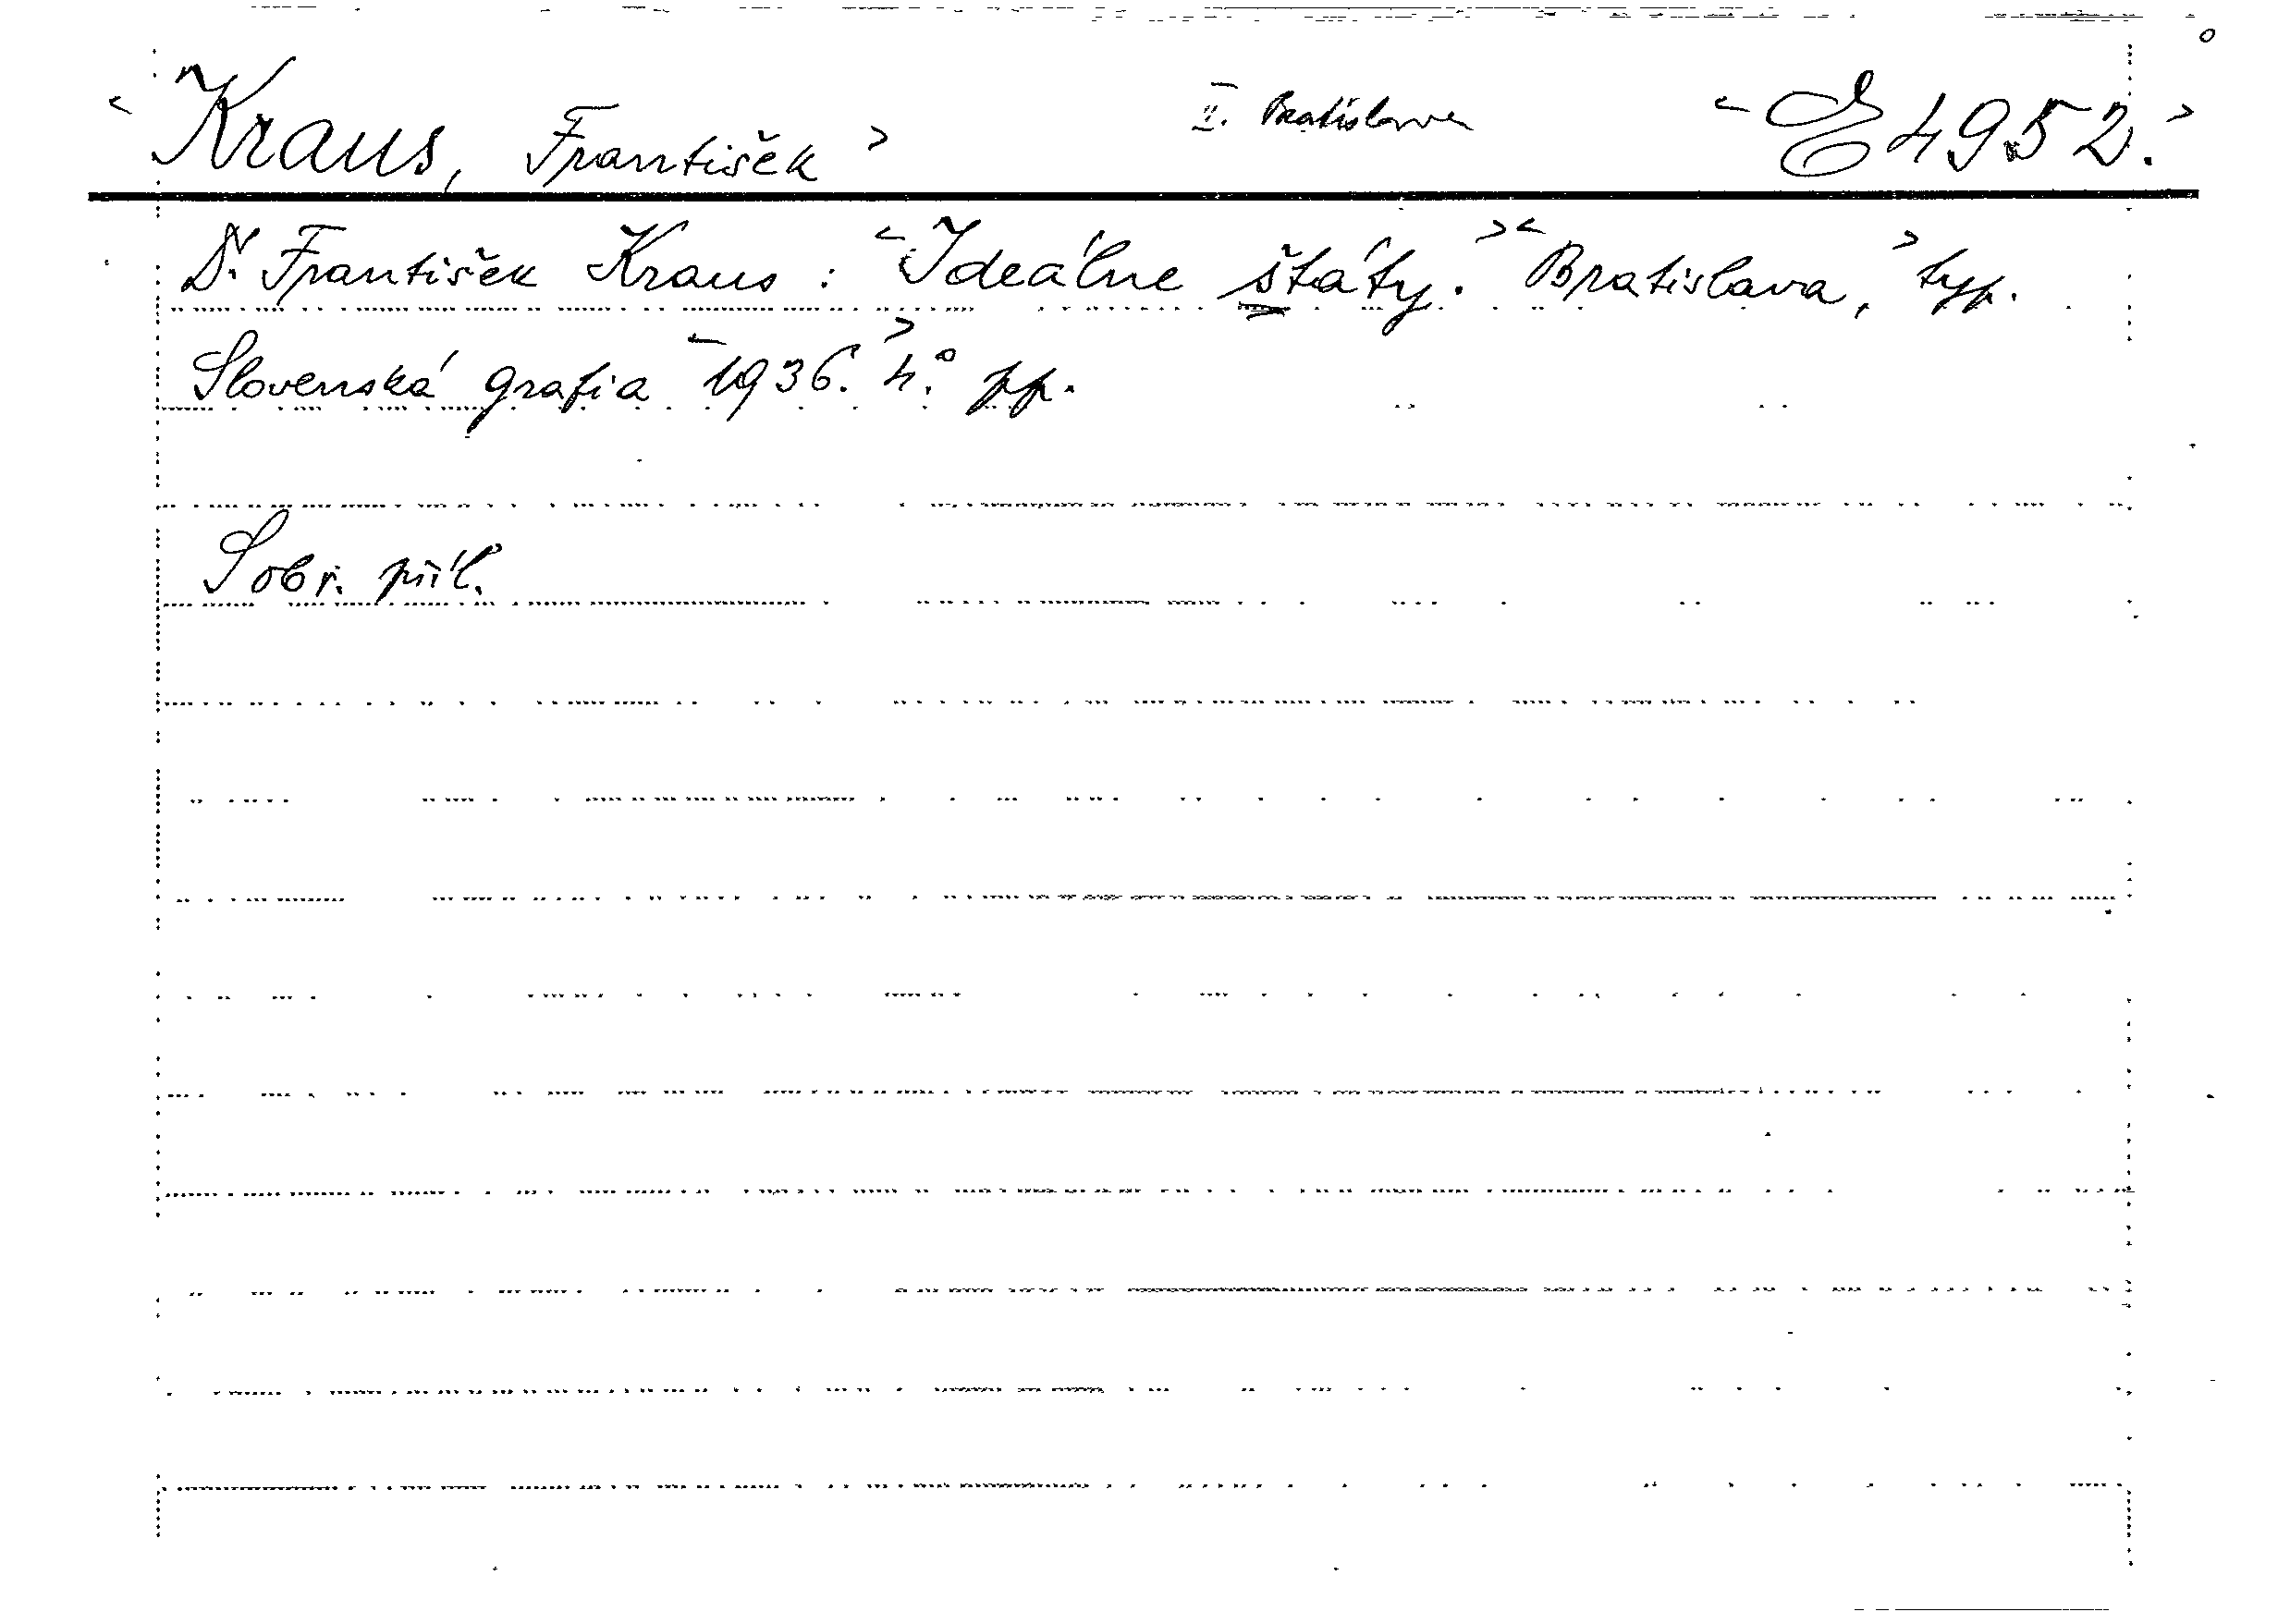 <Kraus, František> II. Bratislava <E 4952.>
Dr. František Kraus : <Ideálne štáty.> <Bratislava,> typ.
Slovenská grafia <1936.> 4.° pp.
S obr. příl.